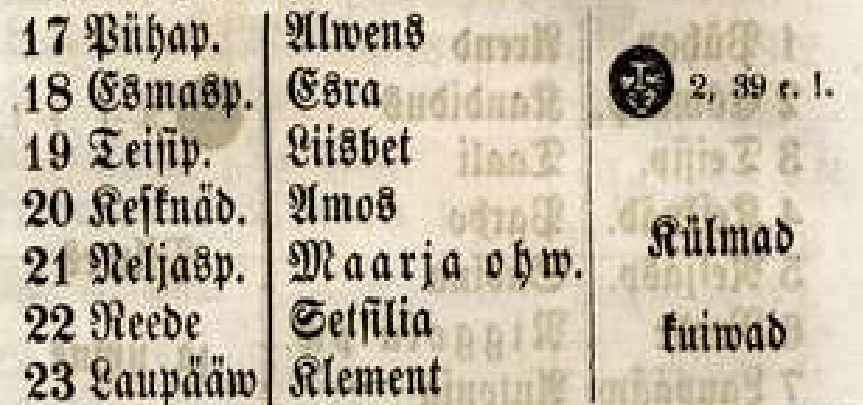 17 Pühap. Alwens
18 Esmasp. Esra 2, 39 e. l.
19 Teisip. Liisbet
20 Kesknäd. Amos
21 Neljasp. Maarja ohw. Külmad
22 Reede Setsilia kuiwad
23 Laupääw Klement